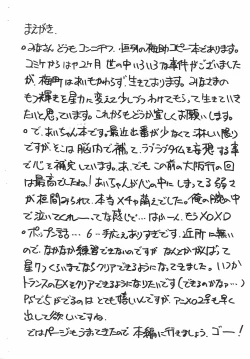 まえがき.
◦みなさん どうも コンニチワ. 恒例の梅町コピー本であります。
コミケからはや2ヶ月 世の中いろいろな事件がございました
が, 梅町はあいもかわらず, 生きております。 みなさまの
もつ輝きを星力に変え 少しづつわけてもらって 生きていき
たいと思っています。 これからもどうか宜しくお願いします。
◦で、あいちゃん本です。最近出番が少なくて 淋しい限り
ですが、そこは脳内で補て、ラブラブライフを 妄想する事
で心を補完しています。あ、でも この前の大阪行の回
は最高でしたね! あいちゃんが心の中に しまってる 弱さ
が垣間みられて、本当メチャ萌えでした。俺の腕の中
で泣いてくれ――って な感じで…はぁ――ん. もうXOXO
◦ポップンたる…6-手だえありすぎです. 近所に無い
ので、なかなか練習できないのですが なんとかがんばって
星7つくらいまでなら クリアできるようになってきました。 いつか
トランスのEXをクリアできるようになりたいす! (できるのかな…)
PSで5がでるのは とても嬉しいんですが、アニメロ2号も早く
出して欲しいですね。
ではページもうまってきたので 本編に行きましょう。ゴー!